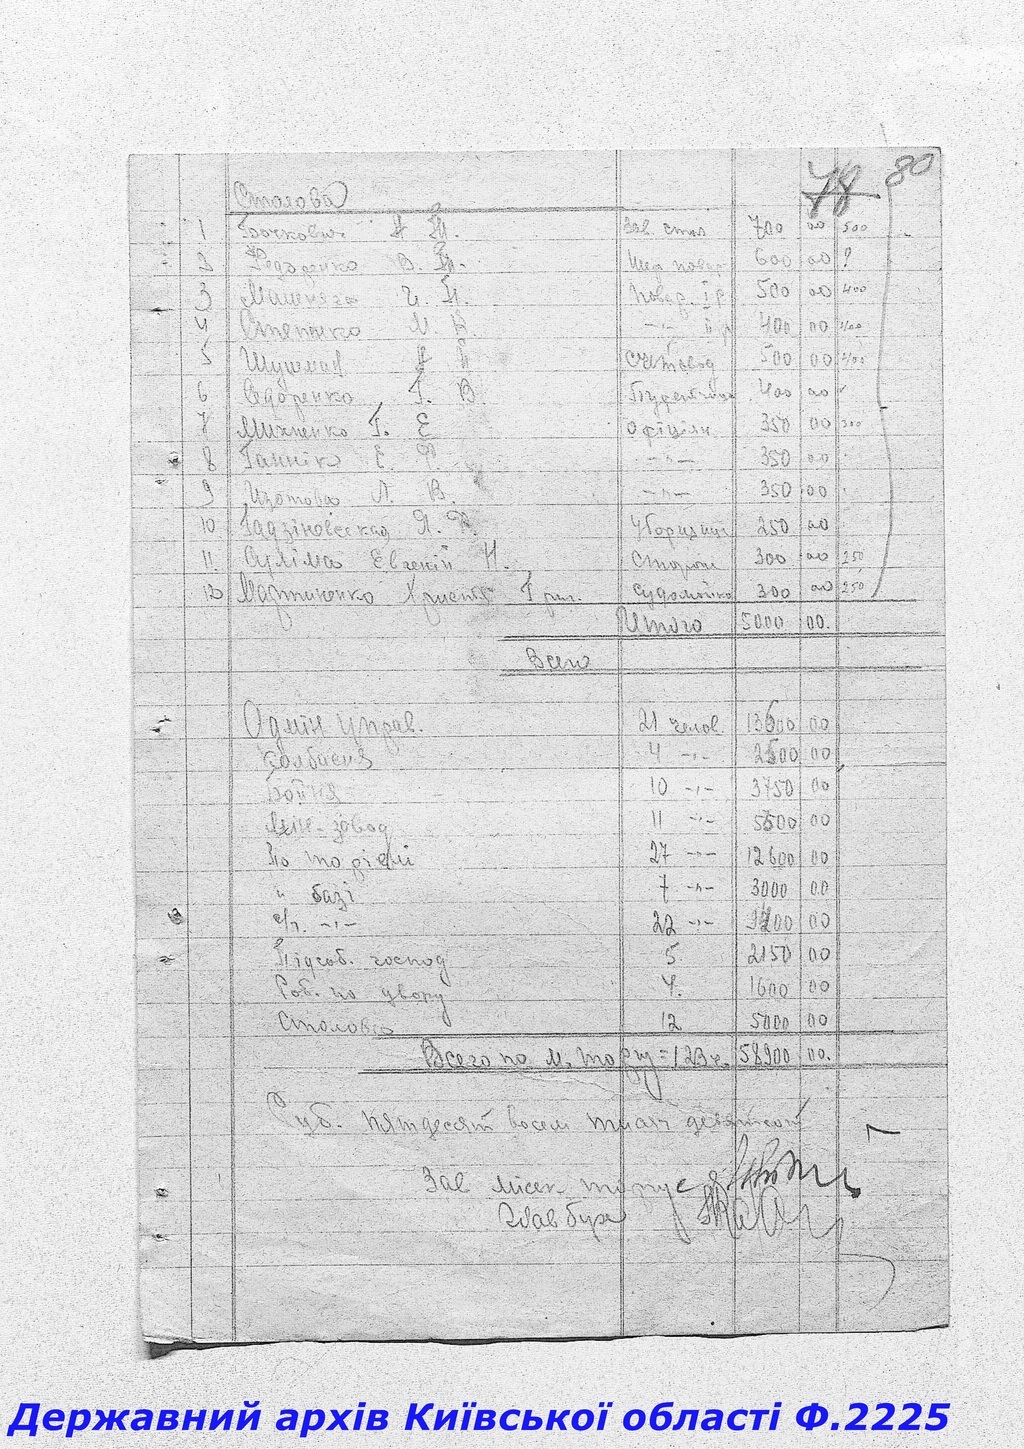 78 80
Столова
1 Бочкович Зав. стол 700 00 500
2 Федоренко В. П. Шеф повар 600 00 ?
3 Повар. І р 500 00 400
4 М. В. -"- ІІ р 400 00 400
5 Шушман счетовод 500 00 400
6 Федоренко Г. В 400 00
7 Михненко Г. Е офіціян. 350 00 300
8 Ганніко Е. Ф. -"- 350 00
9 Изотова Л. В. -"- 350 00
10 Гадзіновская Я. Ф. Уборщиця 250 00
11. Суліма Евгеній Н. Сторож 300 00 250
12 Мартиненко Христя Григ. Судомойка 300 00 250
Итого 5000 00.
Всего
Адмін управ. 21 челов. 13600 00
Колбасня 4 -"- 2500 00
Бойня 10 -"- 3750
завод 11 -"- 5500 00
По торгівлі 27 -"- 12600 00
" базі 7 -"- 3000 00
с/г. -"- 22 -"- 00
Підсоб. господ 5 2150 00
Роб. по двору 4. 1600 00
Столова 12 5000 00
Всего по м. торгу = 123 ч. 58900 00.
Руб. пятдесят восем тисяч девятсот
Зав міськ торгу
Главбух
Державний архів Київської області Ф.2225